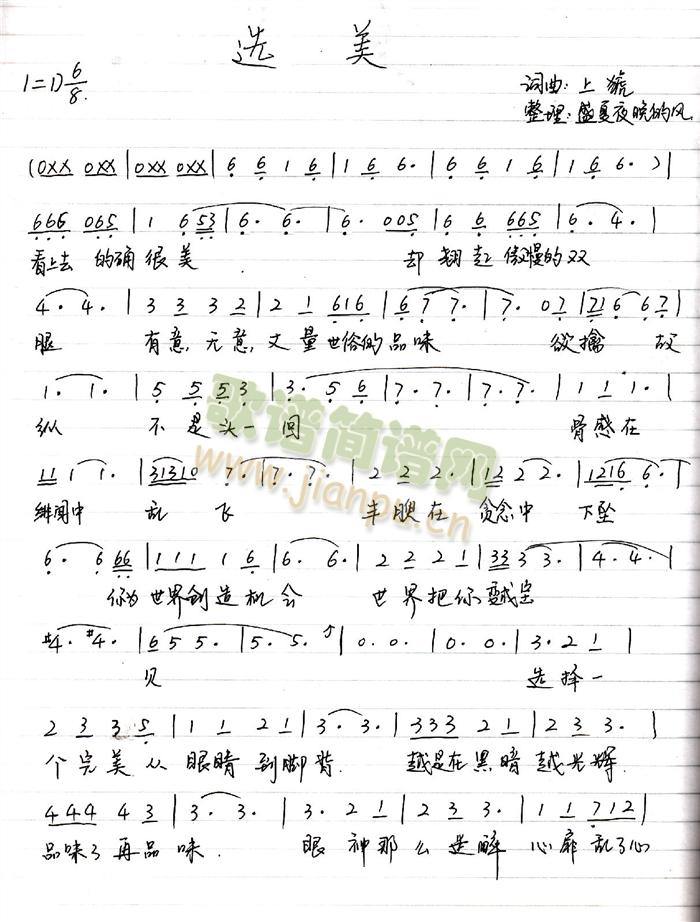 选 美
1=D 6/8
词曲:上
整理:盛夏夜晚的风
(0XX 0XX|0XX 0XX|6 6 1 6|1 6 6.|6 6 1 6|1 6 6.)|
666 065|1 6 53|6. 6.|6. 005|6 6 665|6. 4.|
看上去 的确很美 却翘起傲慢的双
4. 4.|3 3 3 2|2 1 616|6 7 7.|7. 07|716 67|
腿 有意,无意,丈量世俗的品味 欲擒 故
1. 1.|5 5 5 3|3. 5 6|7. 7.|7. 7.|1 1 1.|
纵 不是头一回 骨感在
11 1 1.|31310 7.|7. 7.|2 2 2.|12 2 2.|1216 6.|
绯闻中 乱 飞 丰腴在 贪念中 下坠
6. 6 66|111 1 6|6. 6.|2 2 2 1|333 3 3.|4. 4.|
你为世界创造机会 世界把你变成宝
#4. #4.|6 5 5.|5. 5.|0. 0.|0. 0.|3. 2 1|
贝 选择一
2 3 3 5|1 1 2 1|3. 3.|333 2 1|2 3 3.|
个完美从眼睛到脚背. 越是在黑暗越光辉.
444 4 3|3. 3.|3. 2 1|2 3 3.|1 1 712|
品味了再品味. 眼神那么迷醉 心扉乱了心
歌谱简谱网
www.jianpu.cn